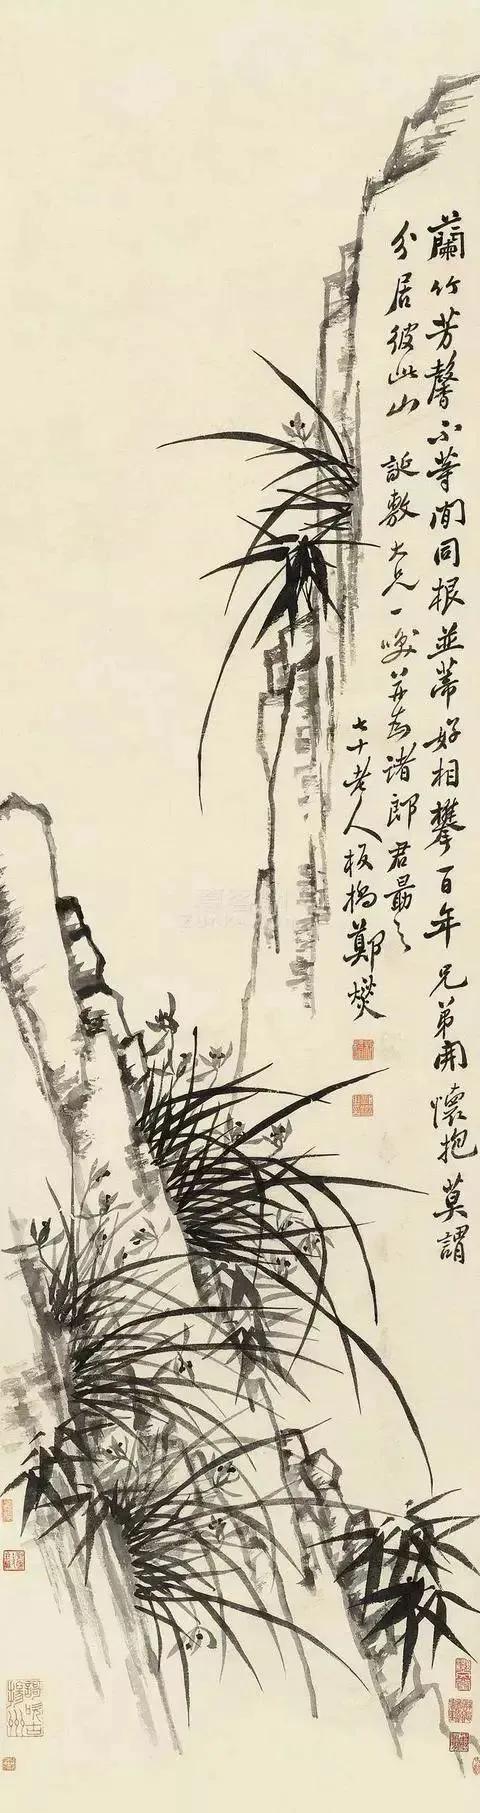 蘭竹芳馨不等閒同根並蒂好相攀百年兄弟開懷抱莫謂
分居彼此山 誕敷大兄一咲并諸郎君勗之
七十老人板橋鄭燮
歌吹古揚州